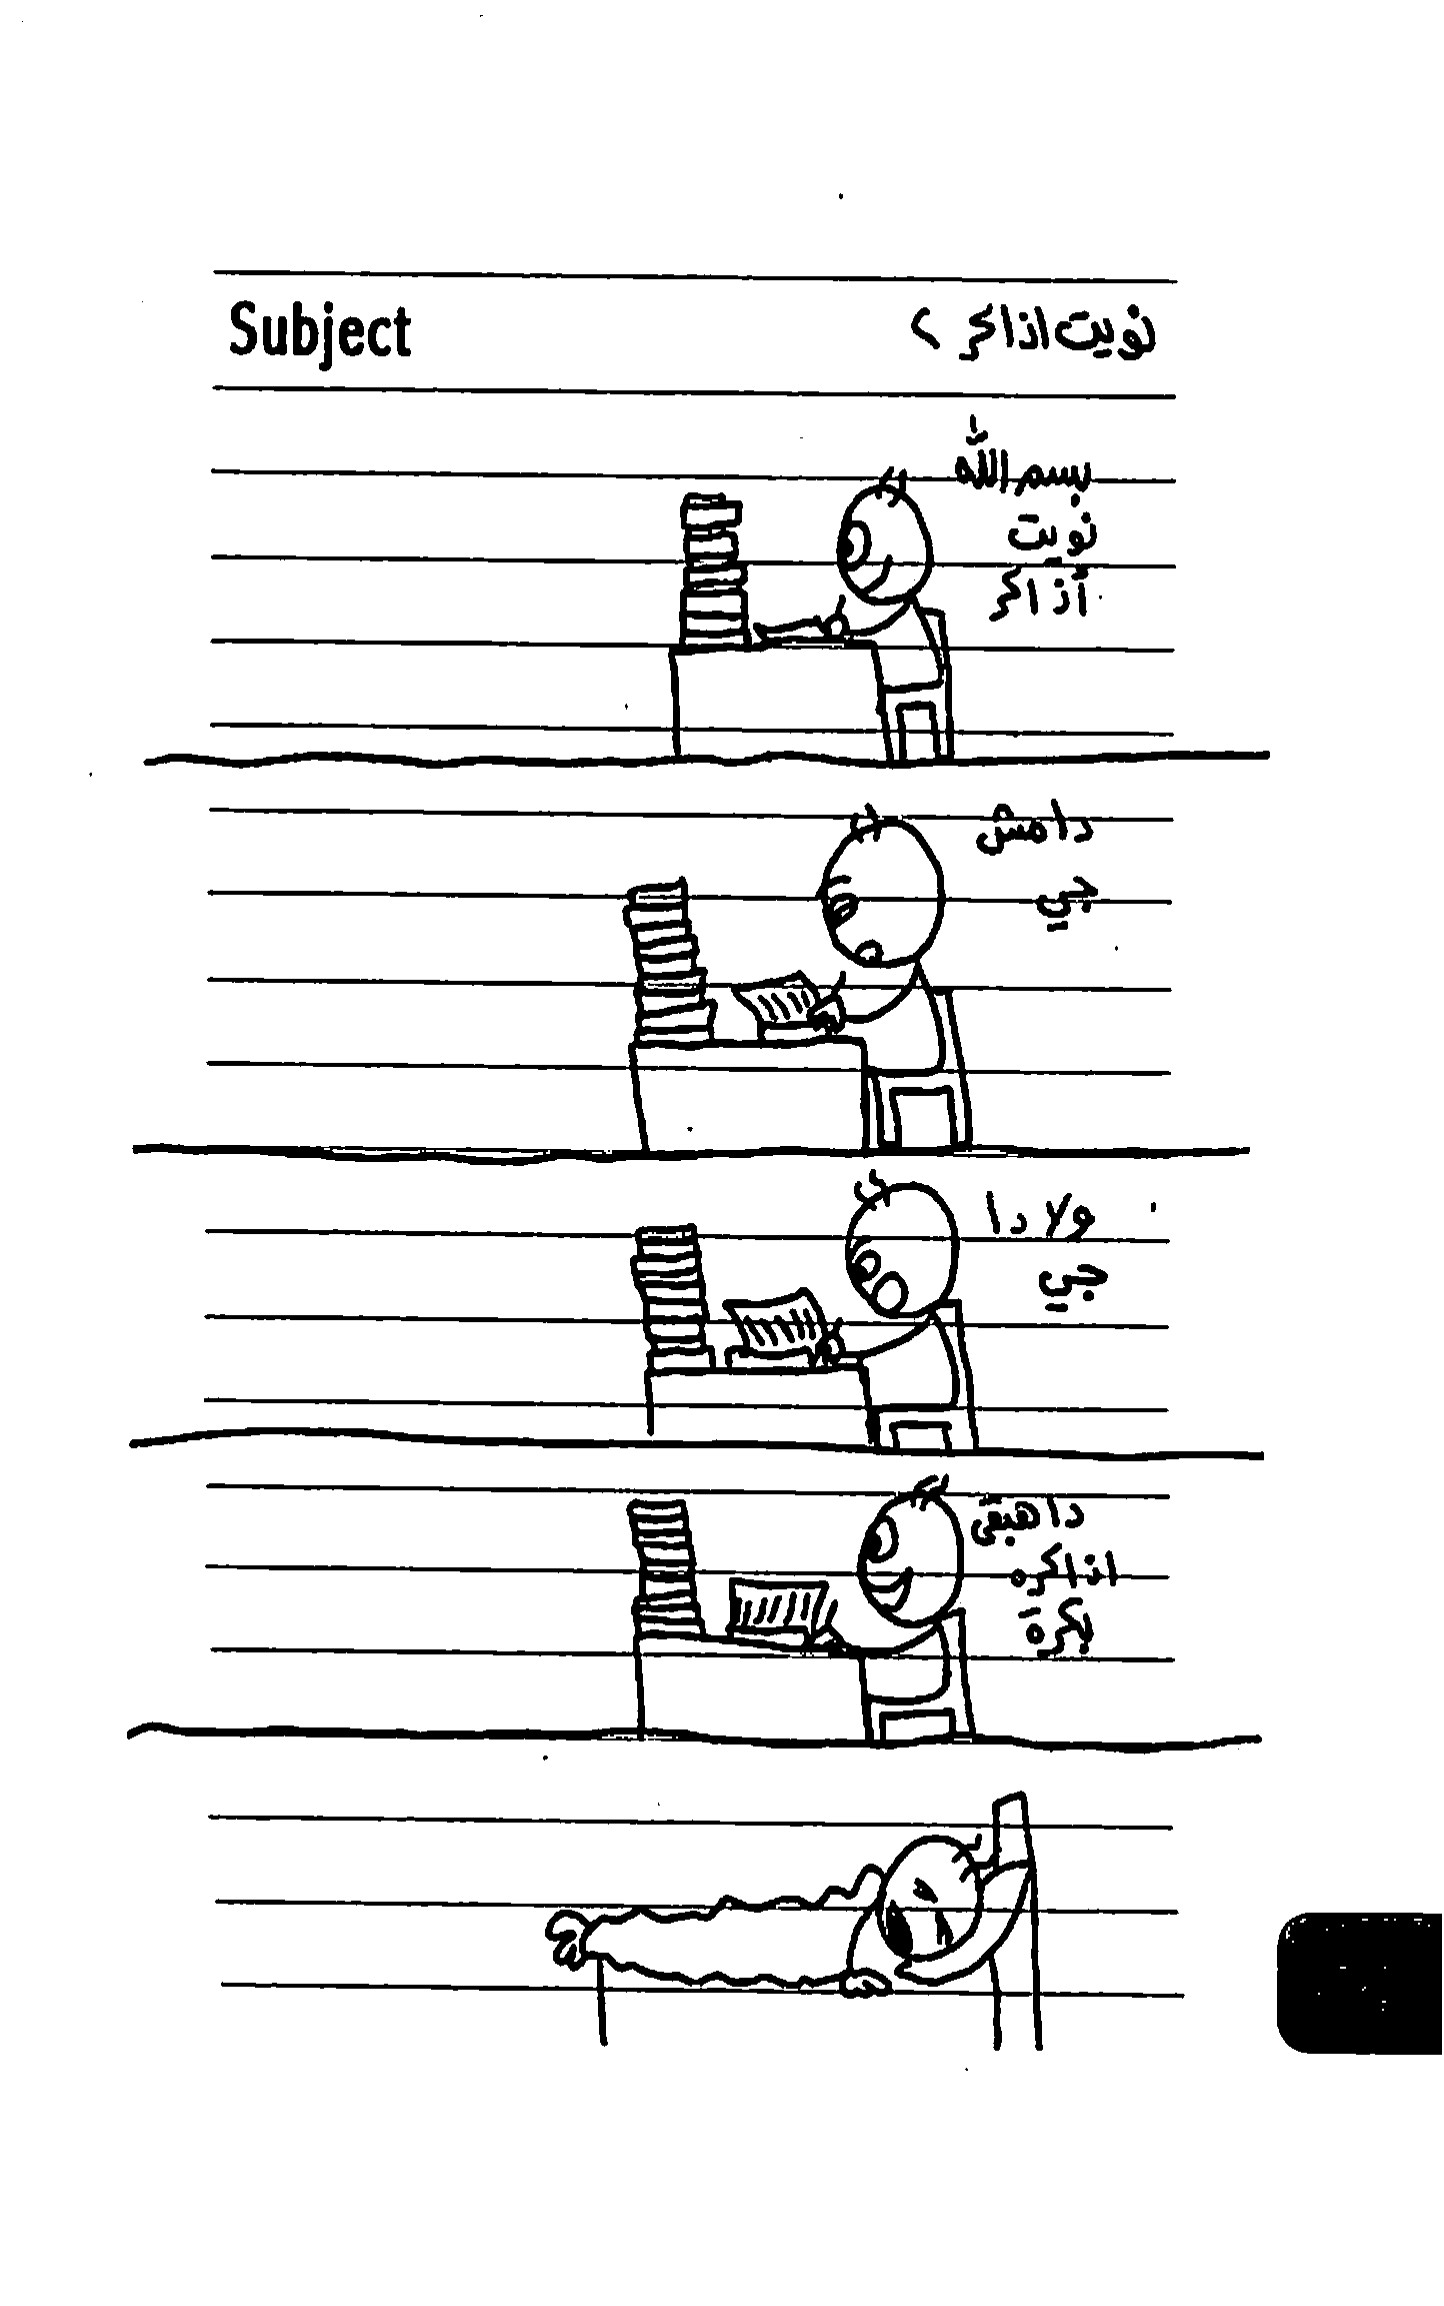 Subject نويت اذاكر >
بسم الله
نويت
أذاكر
دا مش
جي
ولا دا
جي
دا هبقى
اذاكره
بكرة